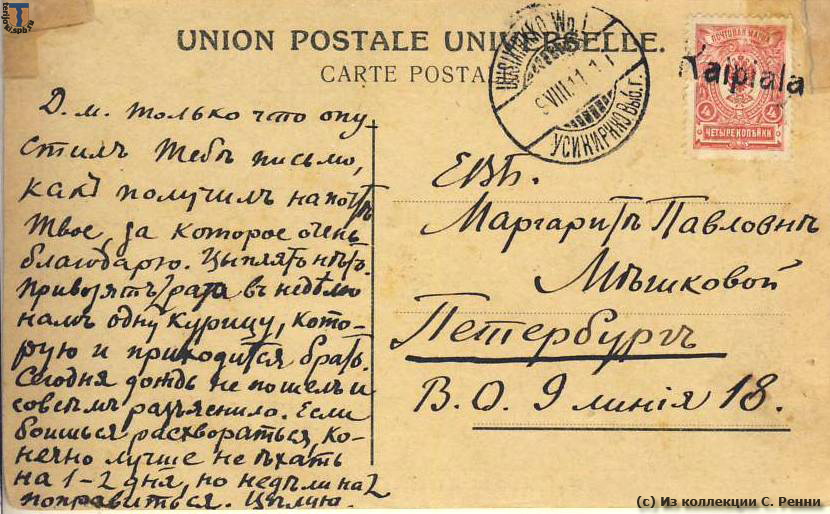 UNION POSTALE UNIVERSELLE.
CARTE POSTALE
UUSIKIRKKO Wp. l.
9.VIII.11.
УСИКИРККО Выб. г.
Kaipiala
ПОЧТОВАЯ МАРКА
4 4
ЧЕТЫРЕ КОПѢЙКИ
Д. М. только что опу-
стилъ Тебѣ письмо,
какъ получилъ на почтѣ
Твое, за которое очень
благодарю. Цыплятъ нѣтъ.
Привозятъ 2 раза въ недѣлю
намъ одну курицу, кото-
рую и приходится брать.
Сегодня дождь не пошелъ и
совсѣмъ разъяснило. Если
боишься расхвораться, ко-
нечно лучше не ѣхать
на 1-2 дня, но недѣли на 2
поправиться. Цѣлую.
ЕВБ.
Маргаритѣ Павловнѣ
Мѣшковой
Петербургъ
В. О. 9 линія 18.
terijoki.spb.ru
(c) Из коллекции С. Ренни